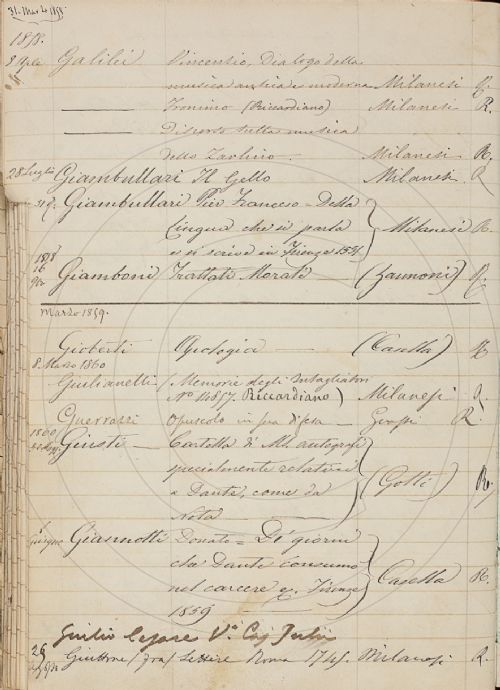 31. Marzo 1858.
1858.
8 Aple Galilei Vincenzio, Dialogo della
musica antica e moderna Milanesi R.
——— Fronimo (Riccardiano) Milanesi R.
——— Discorso sulla musica
dello Zarlino. Milanesi R.
28 Luglio Giambullari Il Gello Milanesi R
Giambullari Pier Francesco = Della
Lingua che si parla Milanesi R.
e si scrive in Firenze 1551
1858
16 Giamboni Trattati Morali — (Zannoni) R.
Marzo 1859.
Gioberti Apologia — (Casella) R
8. Marzo 1860
Giulianelli (Memorie degli Intagliatori
No 14857. Riccardiano) Milanesi R.
Guerrazzi Opuscolo in sua difesa — R.
1860
Giusti — Cartella di M. autografi
specialmente relativi
a Dante, come da (Gotti) R.
Nota ———
Giannotti Donato = De' giorni
che Dante consumò
nel carcere &. Firenze Casella R.
1859 ———
Giulio Cesare Vo.
26 Guittone (fra) Lettere Roma 1745. Milanesi R.